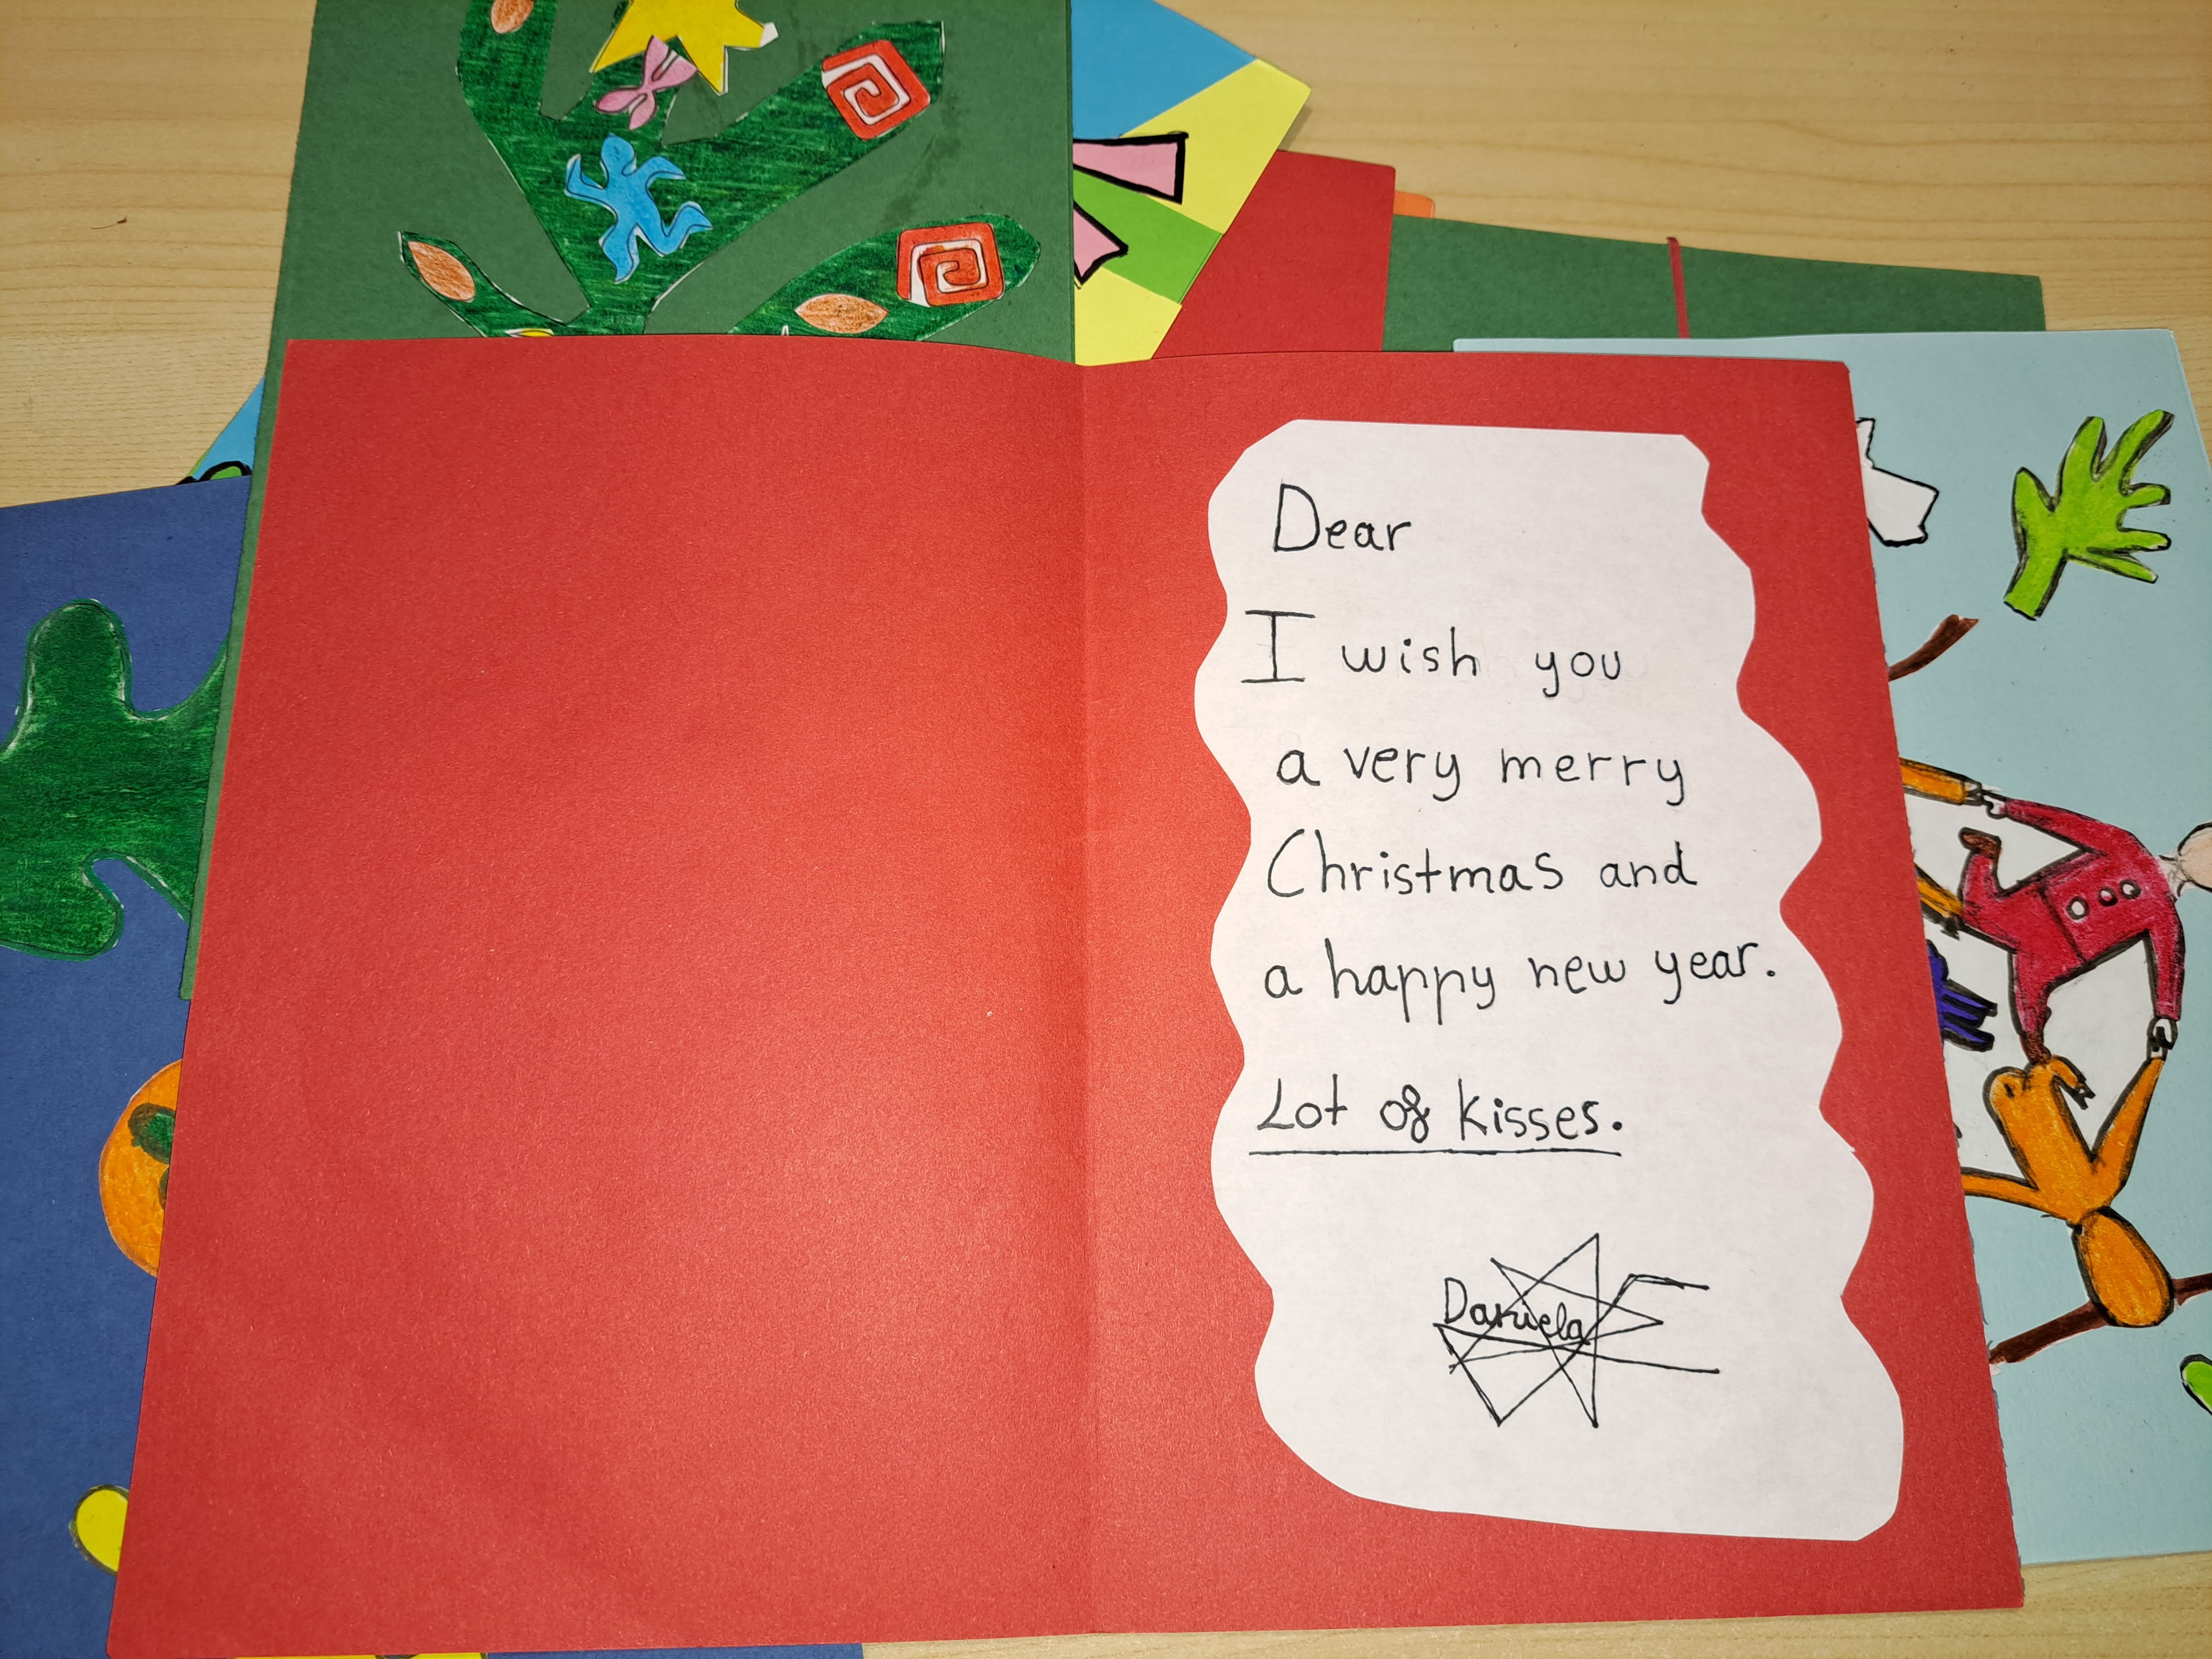 Dear
I wish you
a very merry
Christmas and
a happy new year.
Lot of kisses.
Daniela